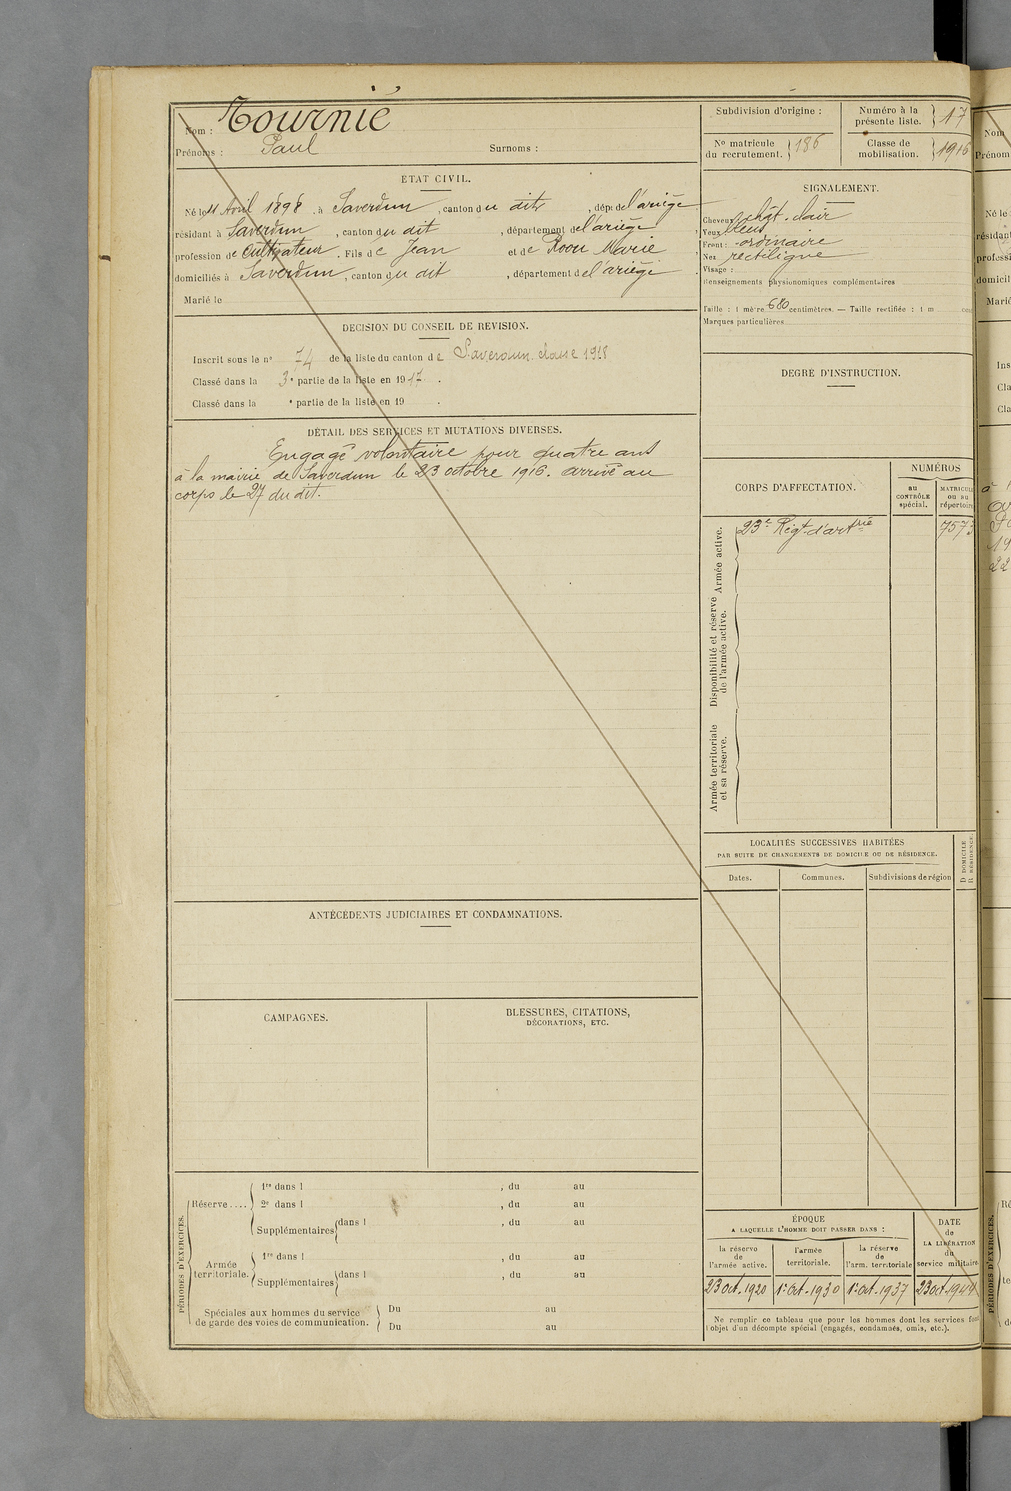 Nom : Tournié
Prénoms : Paul Surnoms :
ETAT CIVIL.
Né le 11 Avril 1898, à Saverdun, canton du dit, dépt de l'ariège
résidant à Saverdun, canton du dit, département de l'ariège,
profession de Cultivateur. Fils de Jean et de Roou Marie,
domiciliés à Saverdun, canton du dit, département de l'ariège
Marié le
DECISION DU CONSEIL DE REVISION.
Inscrit sous le n° 74 de la liste du canton de Saverdun. classe 1918
Classé dans la 3e partie de la liste en 1917.
Classé dans la e partie de la liste en 19 .
DÉTAIL DES SERVICES ET MUTATIONS DIVERSES.
Engagé volontaire pour quatre ans
à la mairie de Saverdun le 23 octobre 1916. arrivé au
corps le 27 du dit.
ANTÉCÉDENTS JUDICIAIRES ET CONDAMNATIONS.
CAMPAGNES.
BLESSURES, CITATIONS,
DÉCORATIONS, ETC.
PÉRIODES D'EXERCICES.
Réserve....
1re dans l , du au
2e dans l , du au
Supplémentaires dans l , du au
Armée
territoriale.
1re dans l , du au
Supplémentaires dans l , du au
Spéciales aux hommes du service
de garde des voies de communication.
Du au
Du au
Subdivision d'origine :
Numéro à la
présente liste. 17
No matricule
du recrutement. 186
Classe de
mobilisation. 1916
SIGNALEMENT.
Cheveux chât. clair
Yeux bleus
Front : ordinaire
Nez rectiligne
Visage :
Renseignements physionomiques complémentaires
Taille : 1 mètre 680 centimètres. — Taille rectifiée : 1 m
Marques particulières
DEGRE D'INSTRUCTION.
CORPS D'AFFECTATION.
NUMÉROS
au
CONTRÔLE
spécial.
MATRICULE
OU AU
répertoire
Armée active.
23e Régt d'artrie 7573
Disponibilité et réserve
de l'armée active.
Armée territoriale
et sa réserve.
LOCALITÉS SUCCESSIVES HABITÉES
PAR SUITE DE CHANGEMENTS DE DOMICILE OU DE RÉSIDENCE.
D DOMICILE
R RÉSIDENCE.
Dates. Communes. Subdivisions de région
ÉPOQUE
A LAQUELLE L'HOMME DOIT PASSER DANS :
la réserve
de
l'armée active.
l'armée
territoriale.
la réserve
de
l'arm. territoriale
DATE
de
LA LIBÉRATION
du
service militaire
23 oct. 1920 1er oct. 1930 1er oct. 1937 23 oct. 1944
Ne remplir ce tableau que pour les hommes dont les services font
l'objet d'un décompte spécial (engagés, condamnés, omis, etc.).